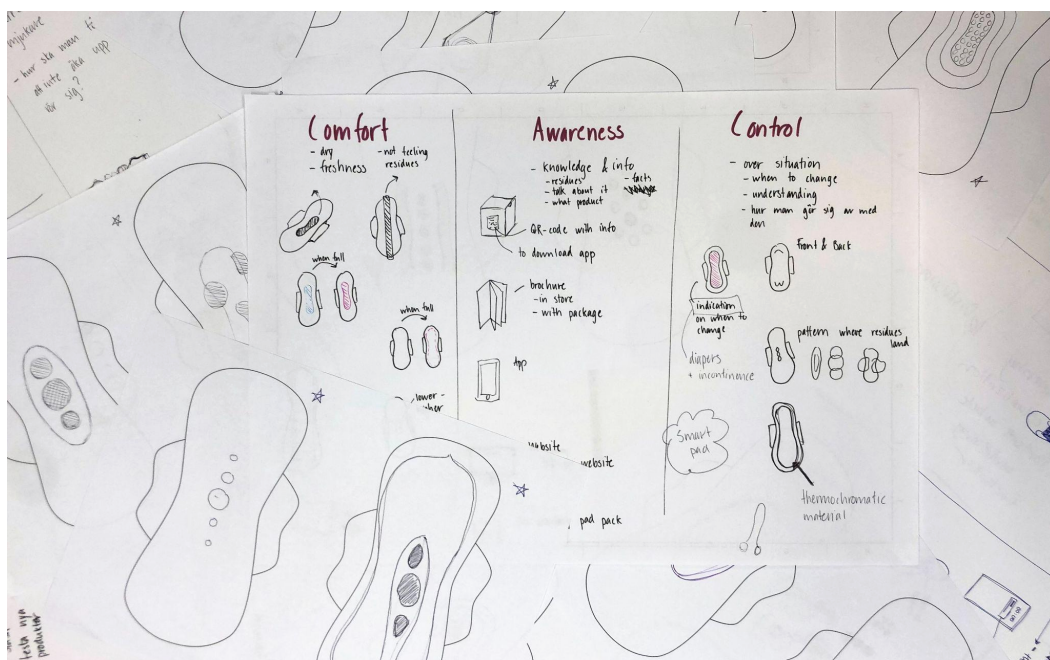 mjukare
- hur ska man få
att inte åka upp
för sig?
Comfort
- dry
- freshness
- not feeling
residues
when full
when full
Awareness
- knowledge & info
- residues
- talk about it
- what product
- facts
QR-code with info
to download app
brochure
- in store
- with package
App
website
website
pad pack
Control
- over situation
- when to change
- understanding
- hur man gör sig av med
den
Front & Back
indication
on when to
change
diapers
+ incontinence
pattern where residues
land
Smart
pad
thermochromatic
material
testa nya
produkter